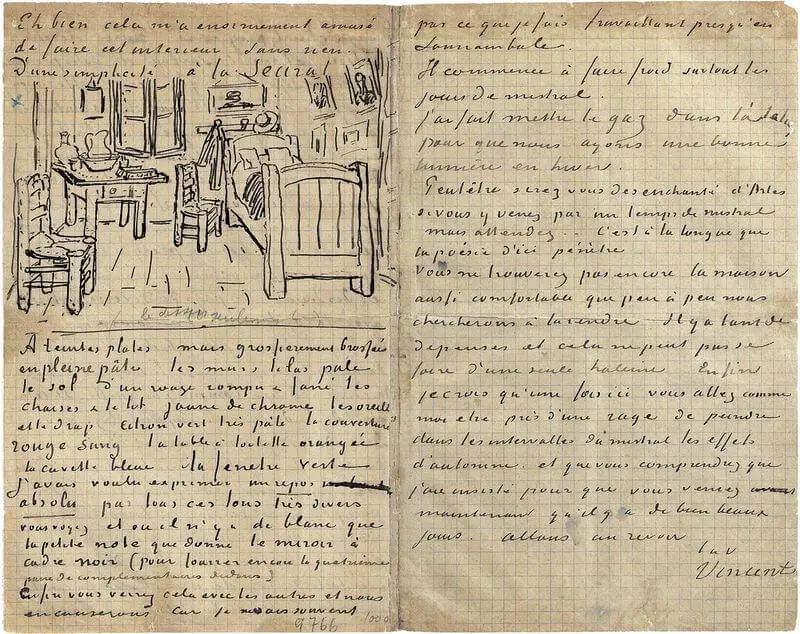 Eh bien cela m'a enormement amusé
de faire cet interieur sans rien.
D'une simplicité à la Seurat
à teintes plates mais grossierement brossées
en pleine pâte les murs lilas pale
le sol d'un rouge rompu & fané les
chaises & le lit jaune de chrome les oreillers
et le drap citron vert très pâle la couverture
rouge sang la table à toilette orangée
la cuvette bleue la fenetre verte
J'avais voulu exprimer un repos
absolu par tous ces tons très divers
vous voyez et où il n'y a de blanc que
la petite note que donne le miroir à
cadre noir (pour fourrer encore la quatrieme
paire de complementaires dedans)
Enfin vous verrez cela avec les autres et nous
en causerons car je ne sais souvent
9766
pas ce que je fais travaillant presqu'en
somnambule.
Il commence à faire froid surtout les
jours de mistral.
J'ai fait mettre le gaz dans l'atelier
pour que nous ayons une bonne
lumière en hiver.
Peutêtre serez vous desenchanté d'Arles
si vous y venez par un temps de mistral
mais attendez.. C'est à la longue que
la poésie d'ici pénètre
Vous ne trouverez pas encore la maison
aussi comfortable que peu à peu nous
chercherons à la rendre. Il y a tant de
depenses et cela ne peut pas se
faire d'une seule haleine Enfin
je crois qu'une fois ici vous allez comme
moi etre pris d'une rage de peindre
dans les intervalles du mistral les effets
d'automne. et que vous comprendrez que
j'aie insisté pour que vous veniez
maintenant qu'il y a de bien beaux
jours. allons au revoir
t. à v.
Vincent